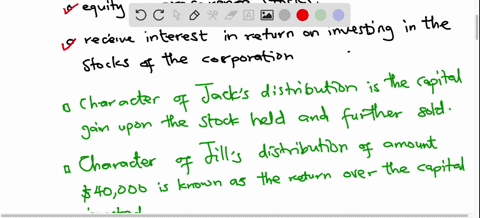 equity
receive interest in return on investing in the
stocks of the corporation
Character of Jack's distribution is the capital
gain upon the stock held and further sold.
Character of Jill's distribution of amount
$40,000 is known as the return over the capital